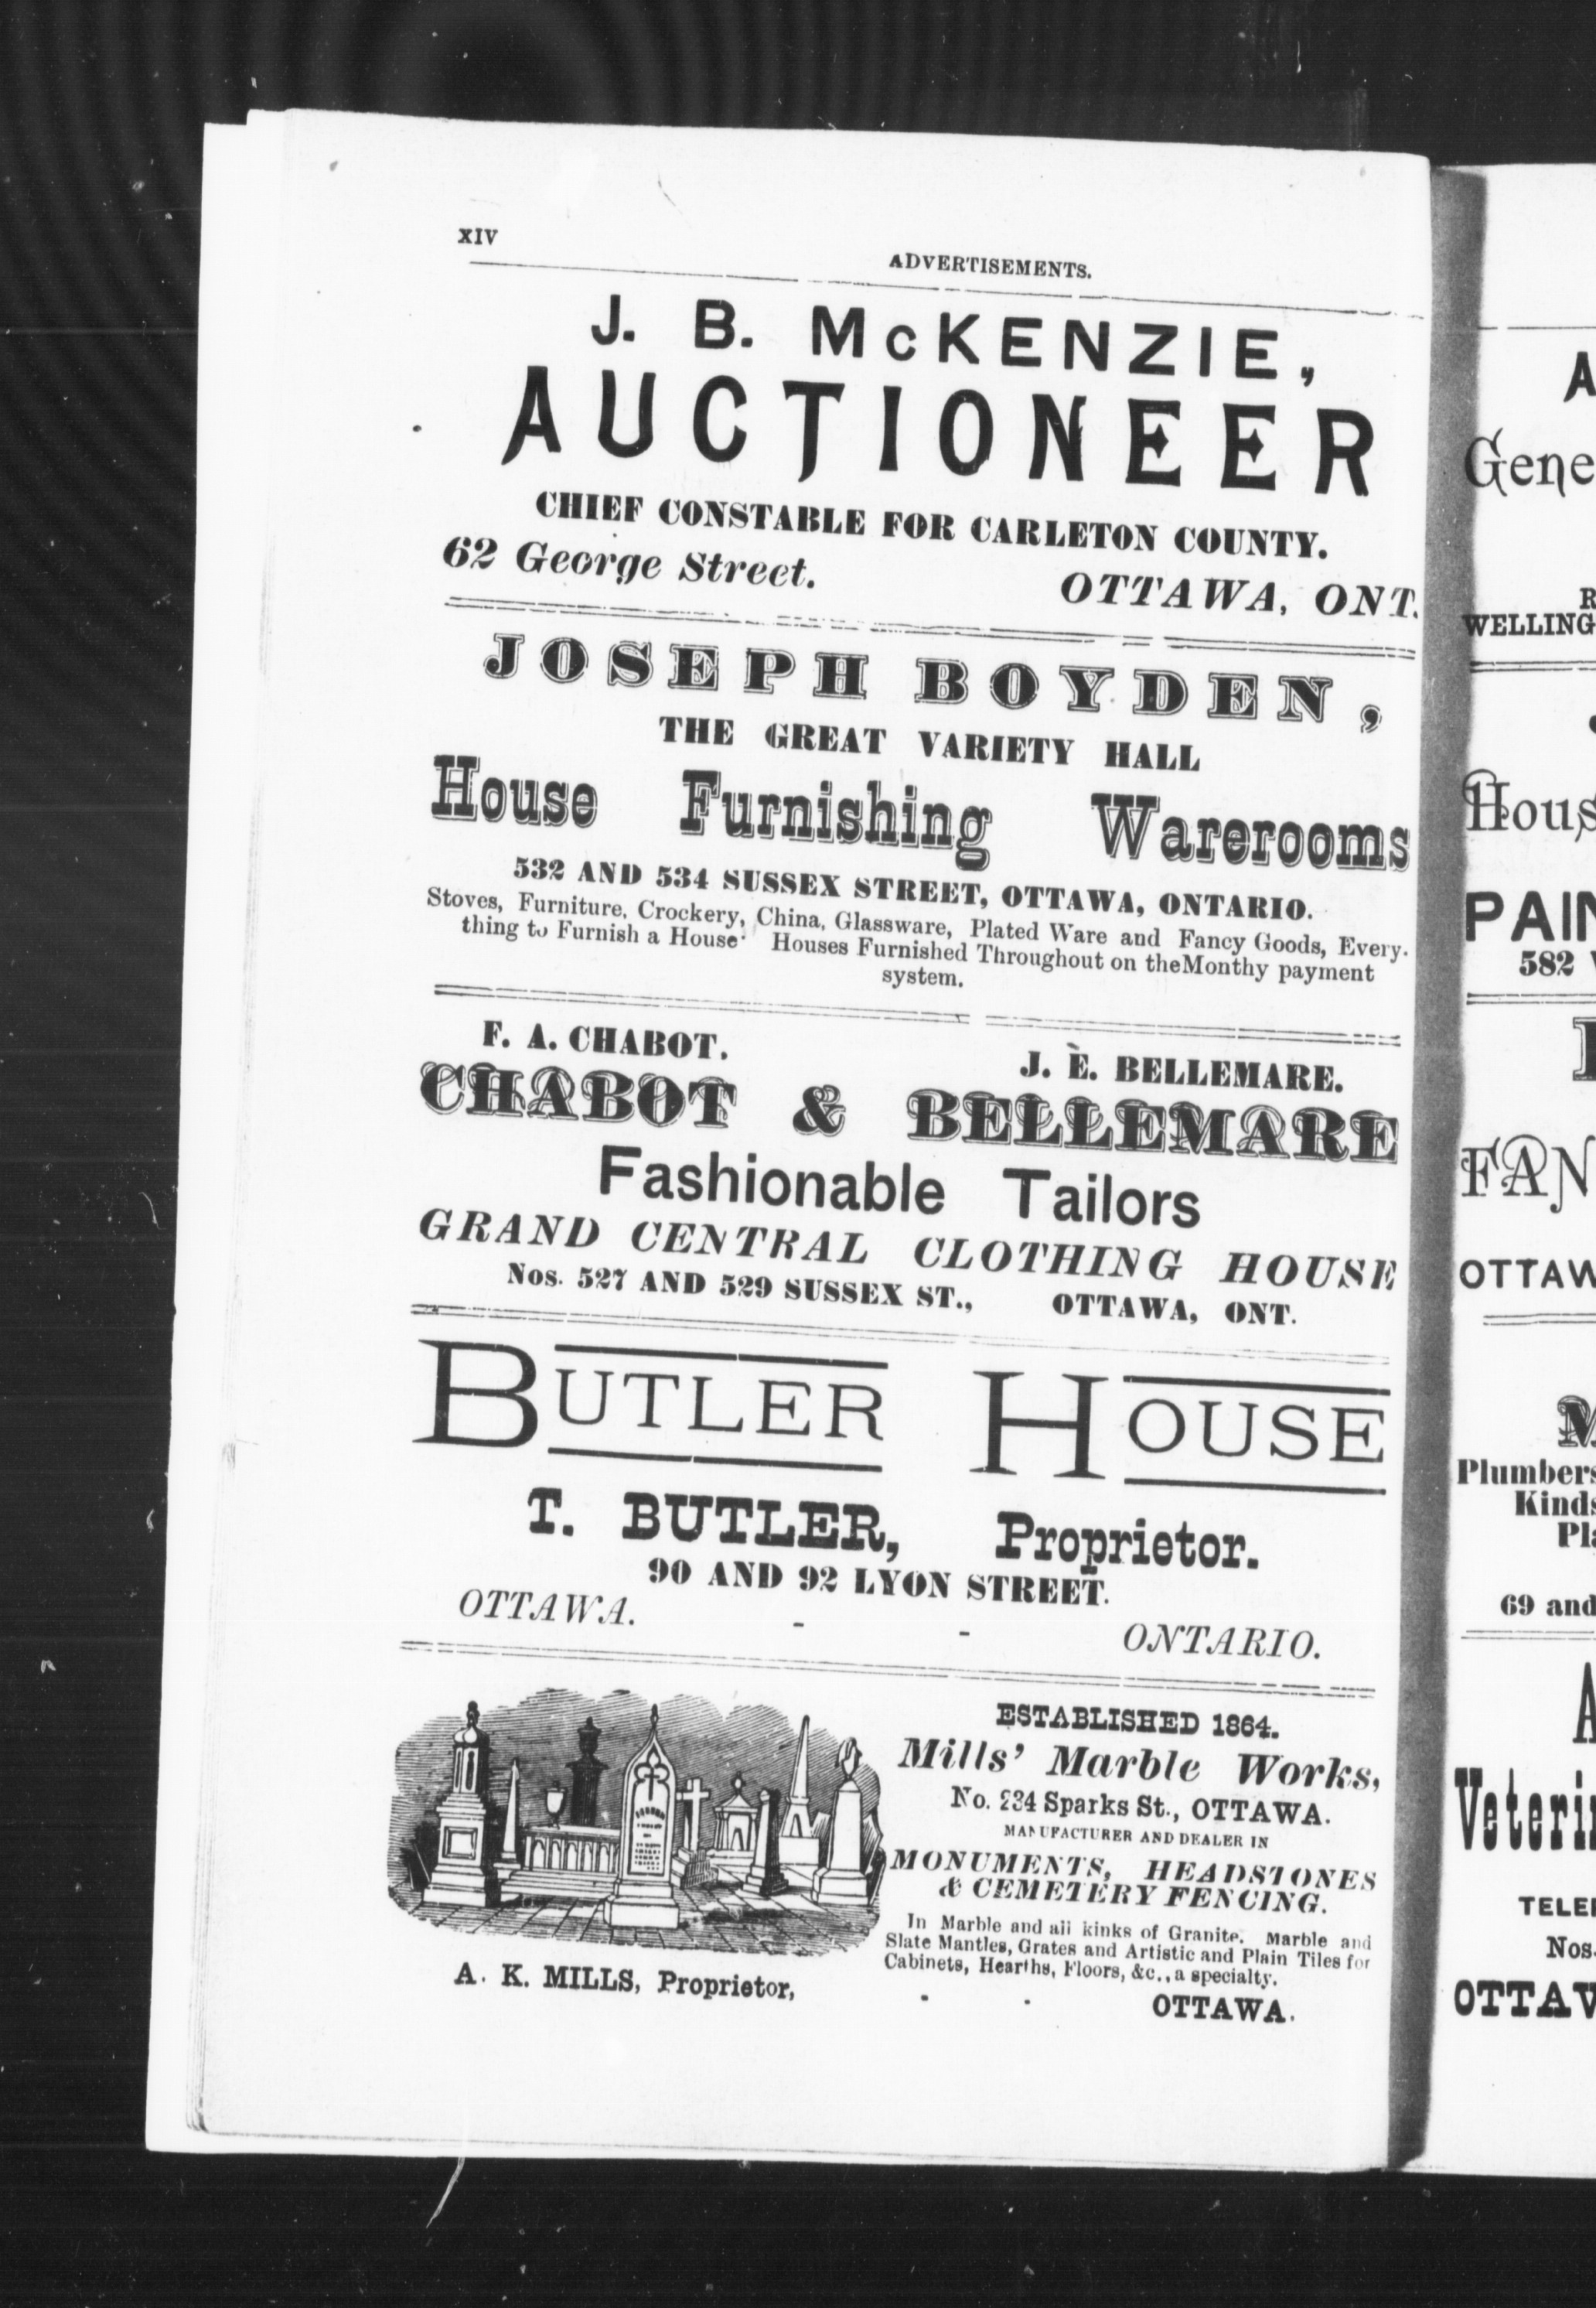 XIV
ADVERTISEMENTS.
J. B. McKENZIE,
AUCTIONEER
CHIEF CONSTABLE FOR CARLETON COUNTY.
62 George Street. OTTAWA, ONT.
JOSEPH BOYDEN,
THE GREAT VARIETY HALL
House Furnishing Warerooms
532 AND 534 SUSSEX STREET, OTTAWA, ONTARIO.
Stoves, Furniture, Crockery, China, Glassware, Plated Ware and Fancy Goods, Every-
thing to Furnish a House. Houses Furnished Throughout on theMonthy payment
system.
F. A. CHABOT. J. E. BELLEMARE.
CHABOT & BELLEMARE
Fashionable Tailors
GRAND CENTRAL CLOTHING HOUSE
Nos. 527 AND 529 SUSSEX ST., OTTAWA, ONT.
BUTLER HOUSE
T. BUTLER, Proprietor.
90 AND 92 LYON STREET.
OTTAWA. - - ONTARIO.
ESTABLISHED 1864.
Mills' Marble Works,
No. 234 Sparks St., OTTAWA.
MANUFACTURER AND DEALER IN
MONUMENTS, HEADSTONES
& CEMETERY FENCING.
In Marble and all kinks of Granite. Marble and
Slate Mantles, Grates and Artistic and Plain Tiles for
Cabinets, Hearths, Floors, &c., a specialty.
A. K. MILLS, Proprietor, - - OTTAWA.
A
Gene
R
WELLING
Hous
PAIN
582
FAN
OTTAW
M
Plumbers
Kinds
Pla
69 and
A
Veterin
TELEP
Nos.
OTTAW